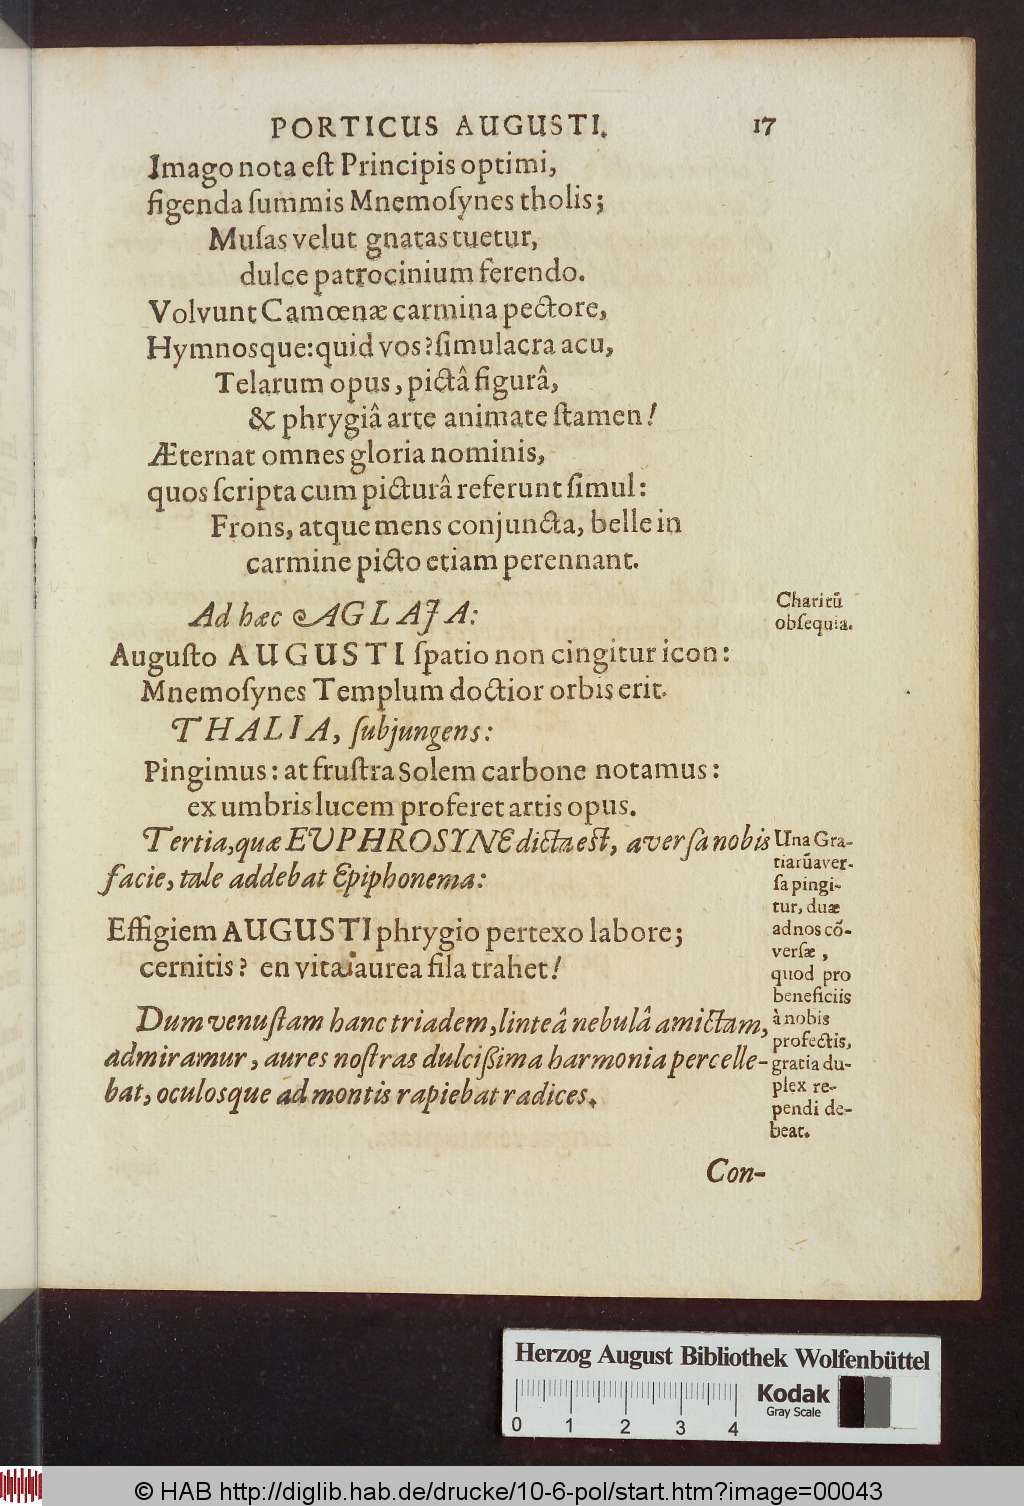 PORTICUS AUGUSTI. 17
Imago nota eſt Principis optimi,
figenda ſummis Mnemoſynes tholis;
Muſas velut gnatas tuetur,
dulce patrocinium ferendo.
Volvunt Camœnæ carmina pectore,
Hymnosque: quid vos? ſimulacra acu,
Telarum opus, pictâ figurâ,
& phrygiâ arte animate ſtamen!
Æternat omnes gloria nominis,
quos ſcripta cum picturâ referunt ſimul:
Frons, atque mens conjuncta, belle in
carmine picto etiam perennant.
Ad hæc AGLAJA:
Charitũ
obſequia.
Auguſto AUGUSTI ſpatio non cingitur icon:
Mnemoſynes Templum doctior orbis erit.
THALIA, ſubjungens:
Pingimus: at fruſtra Solem carbone notamus:
ex umbris lucem proferet artis opus.
Tertia, quæ EUPHROSYNE dicta eſt, averſa nobis
facie, tale addebat Epiphonema:
Effigiem AUGUSTI phrygio pertexo labore;
cernitis? en vitai aurea fila trahet!
Dum venuſtam hanc triadem, linteâ nebulâ amictam,
admiramur, aures noſtras dulciſſima harmonia percelle-
bat, oculosque ad montis rapiebat radices.
Una Gra-
tiarũ aver-
ſa pingi-
tur, duæ
ad nos cõ-
verſæ,
quod pro
beneficiis
à nobis
profectis,
gratia du-
plex re-
pendi de-
beat.
Con-
Herzog August Bibliothek Wolfenbüttel
0 1 2 3 4
Kodak
Gray Scale
© HAB http://diglib.hab.de/drucke/10-6-pol/start.htm?image=00043